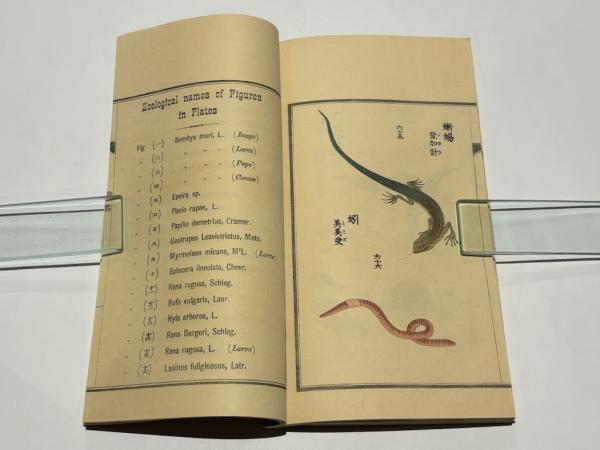 Zoological names of Figures
in Plates
Fig (一) Bombyx mori, L. (Imago)
" (二) " " " (Larva)
" (三) " " " (Pupa)
" (四) " " " (Cocoon)
" (五) Epeira sp.
" (六) Pieris rapae, L.
" (七) Papilio demetrius, Cramer.
" (八) Geotrupes Leavistriatus, Mots.
" (九) Myrmeleon micans, M'L. (Larva)
" (十) Batocera lineolata, Chevr.
" (十一) Rana rugosa, Schleg.
" (十二) Bufo vulgaris, Laur.
" (十三) Hyla arborea, L.
" (十四) Rana Burgeri, Schleg.
" (十五) Rana rugosa, L. (Larva)
" (十六) Lasinus fuliginosus, Latr.
蜥蜴
登加計
六十五
蚓
美美受
六十六